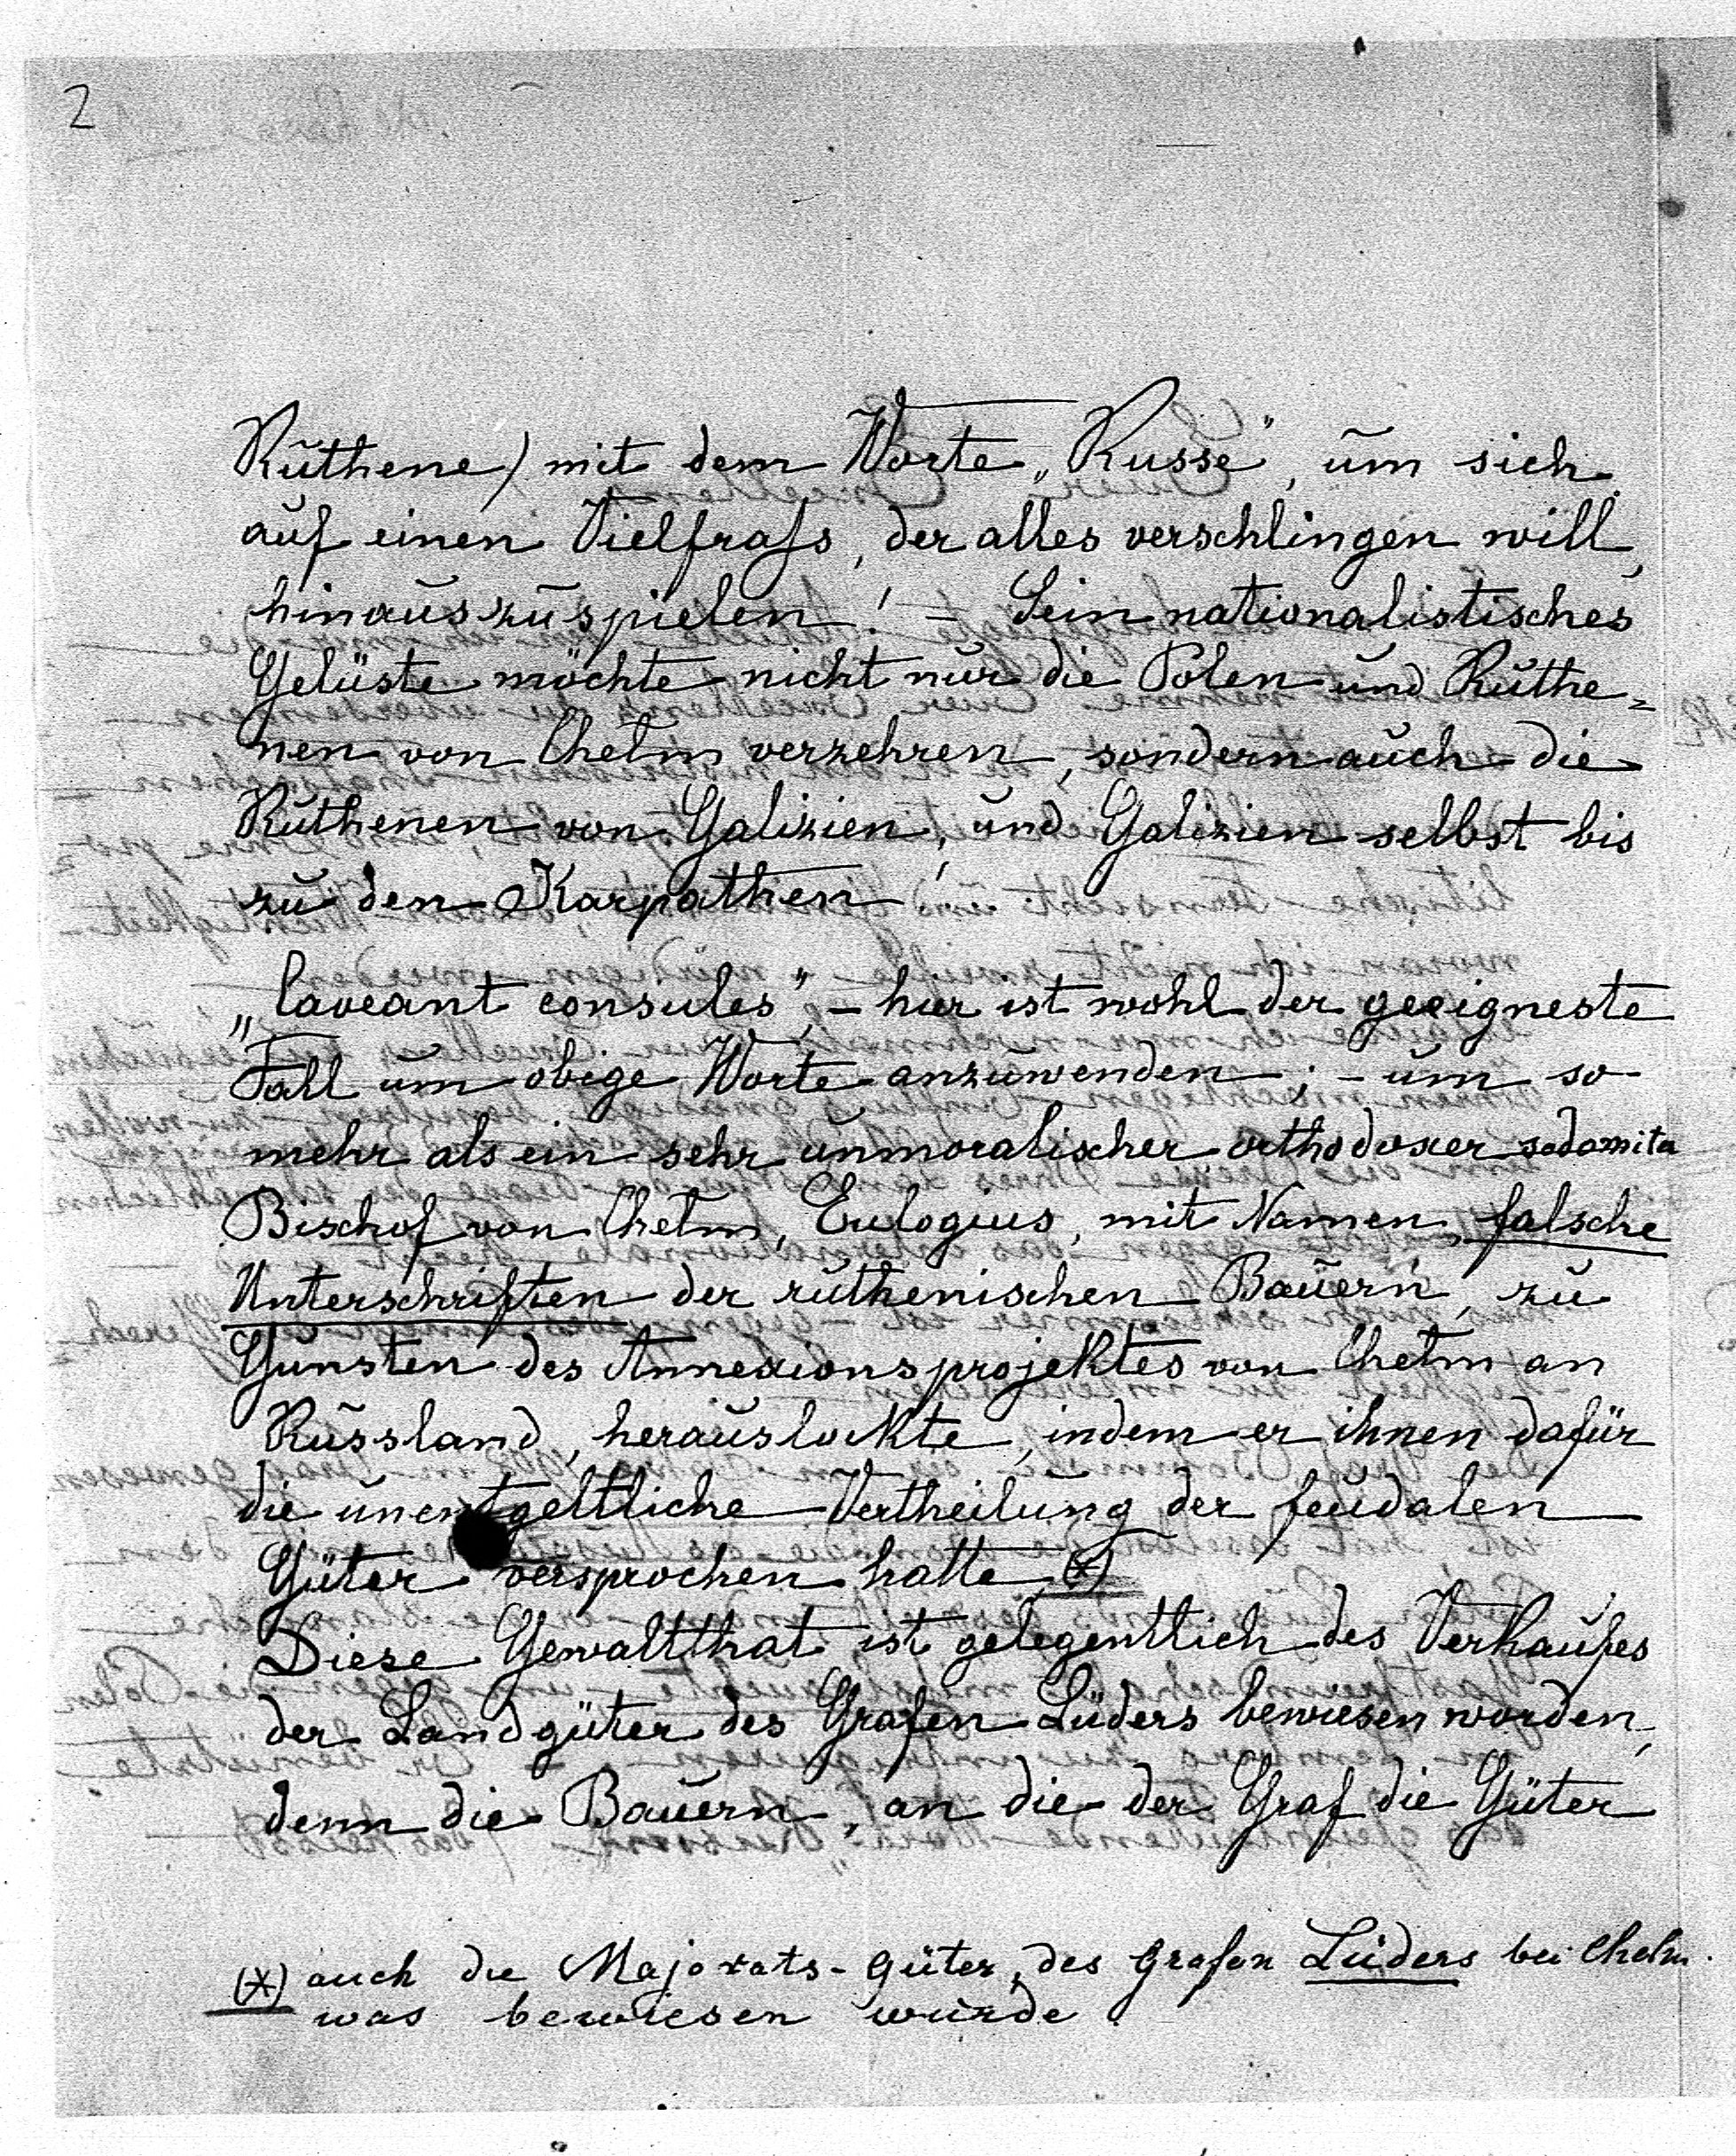 2
Ruthene) mit dem Worte „Russe", um sich
auf einen Vielfraſs, der alles verschlingen will,
hinauszuspielen! – Sein nationalistisches
Gelüste möchte nicht nur die Polen und Ruthe=
nen von Chełm verzehren, sondern auch die
Ruthenen von Galizien, und Galizien selbst bis
zu den Karpathen!
„Caveant consules", – hier ist wohl der geeigneste
Fall um obige Worte anzuwenden; – um so
mehr als ein sehr unmoralischer orthodoxer sodomita
Bischof von Chełm, Eulogius, mit Namen, falsche
Unterschriften der ruthenischen Bauern, zu
Gunsten des Annexionsprojektes von Chełm an
Russland, herauslockte, indem er ihnen dafür
die unentgeltliche Vertheilung der feudalen
Güter versprochen hatte. (*)
Diese Gewaltthat ist gelegentlich des Verkaufes
der Landgüter des Grafen Lüders bewiesen worden,
denn die Bauern, an die der Graf die Güter
(*) auch die Majorats-Güter, des Grafen Lüders bei Chełm.
was bewiesen wurde.